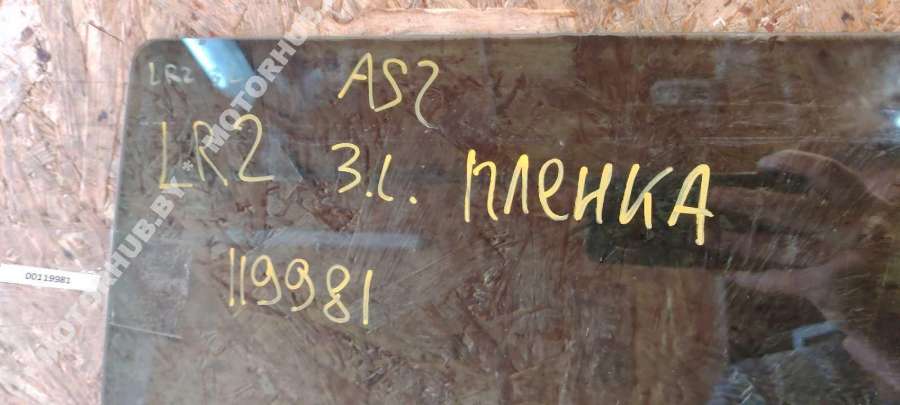 LR2
AS2
LR2 З.L. ПЛЕНКА
119981
00119981
MOTORHUB.BY * MOTORHUB.BY